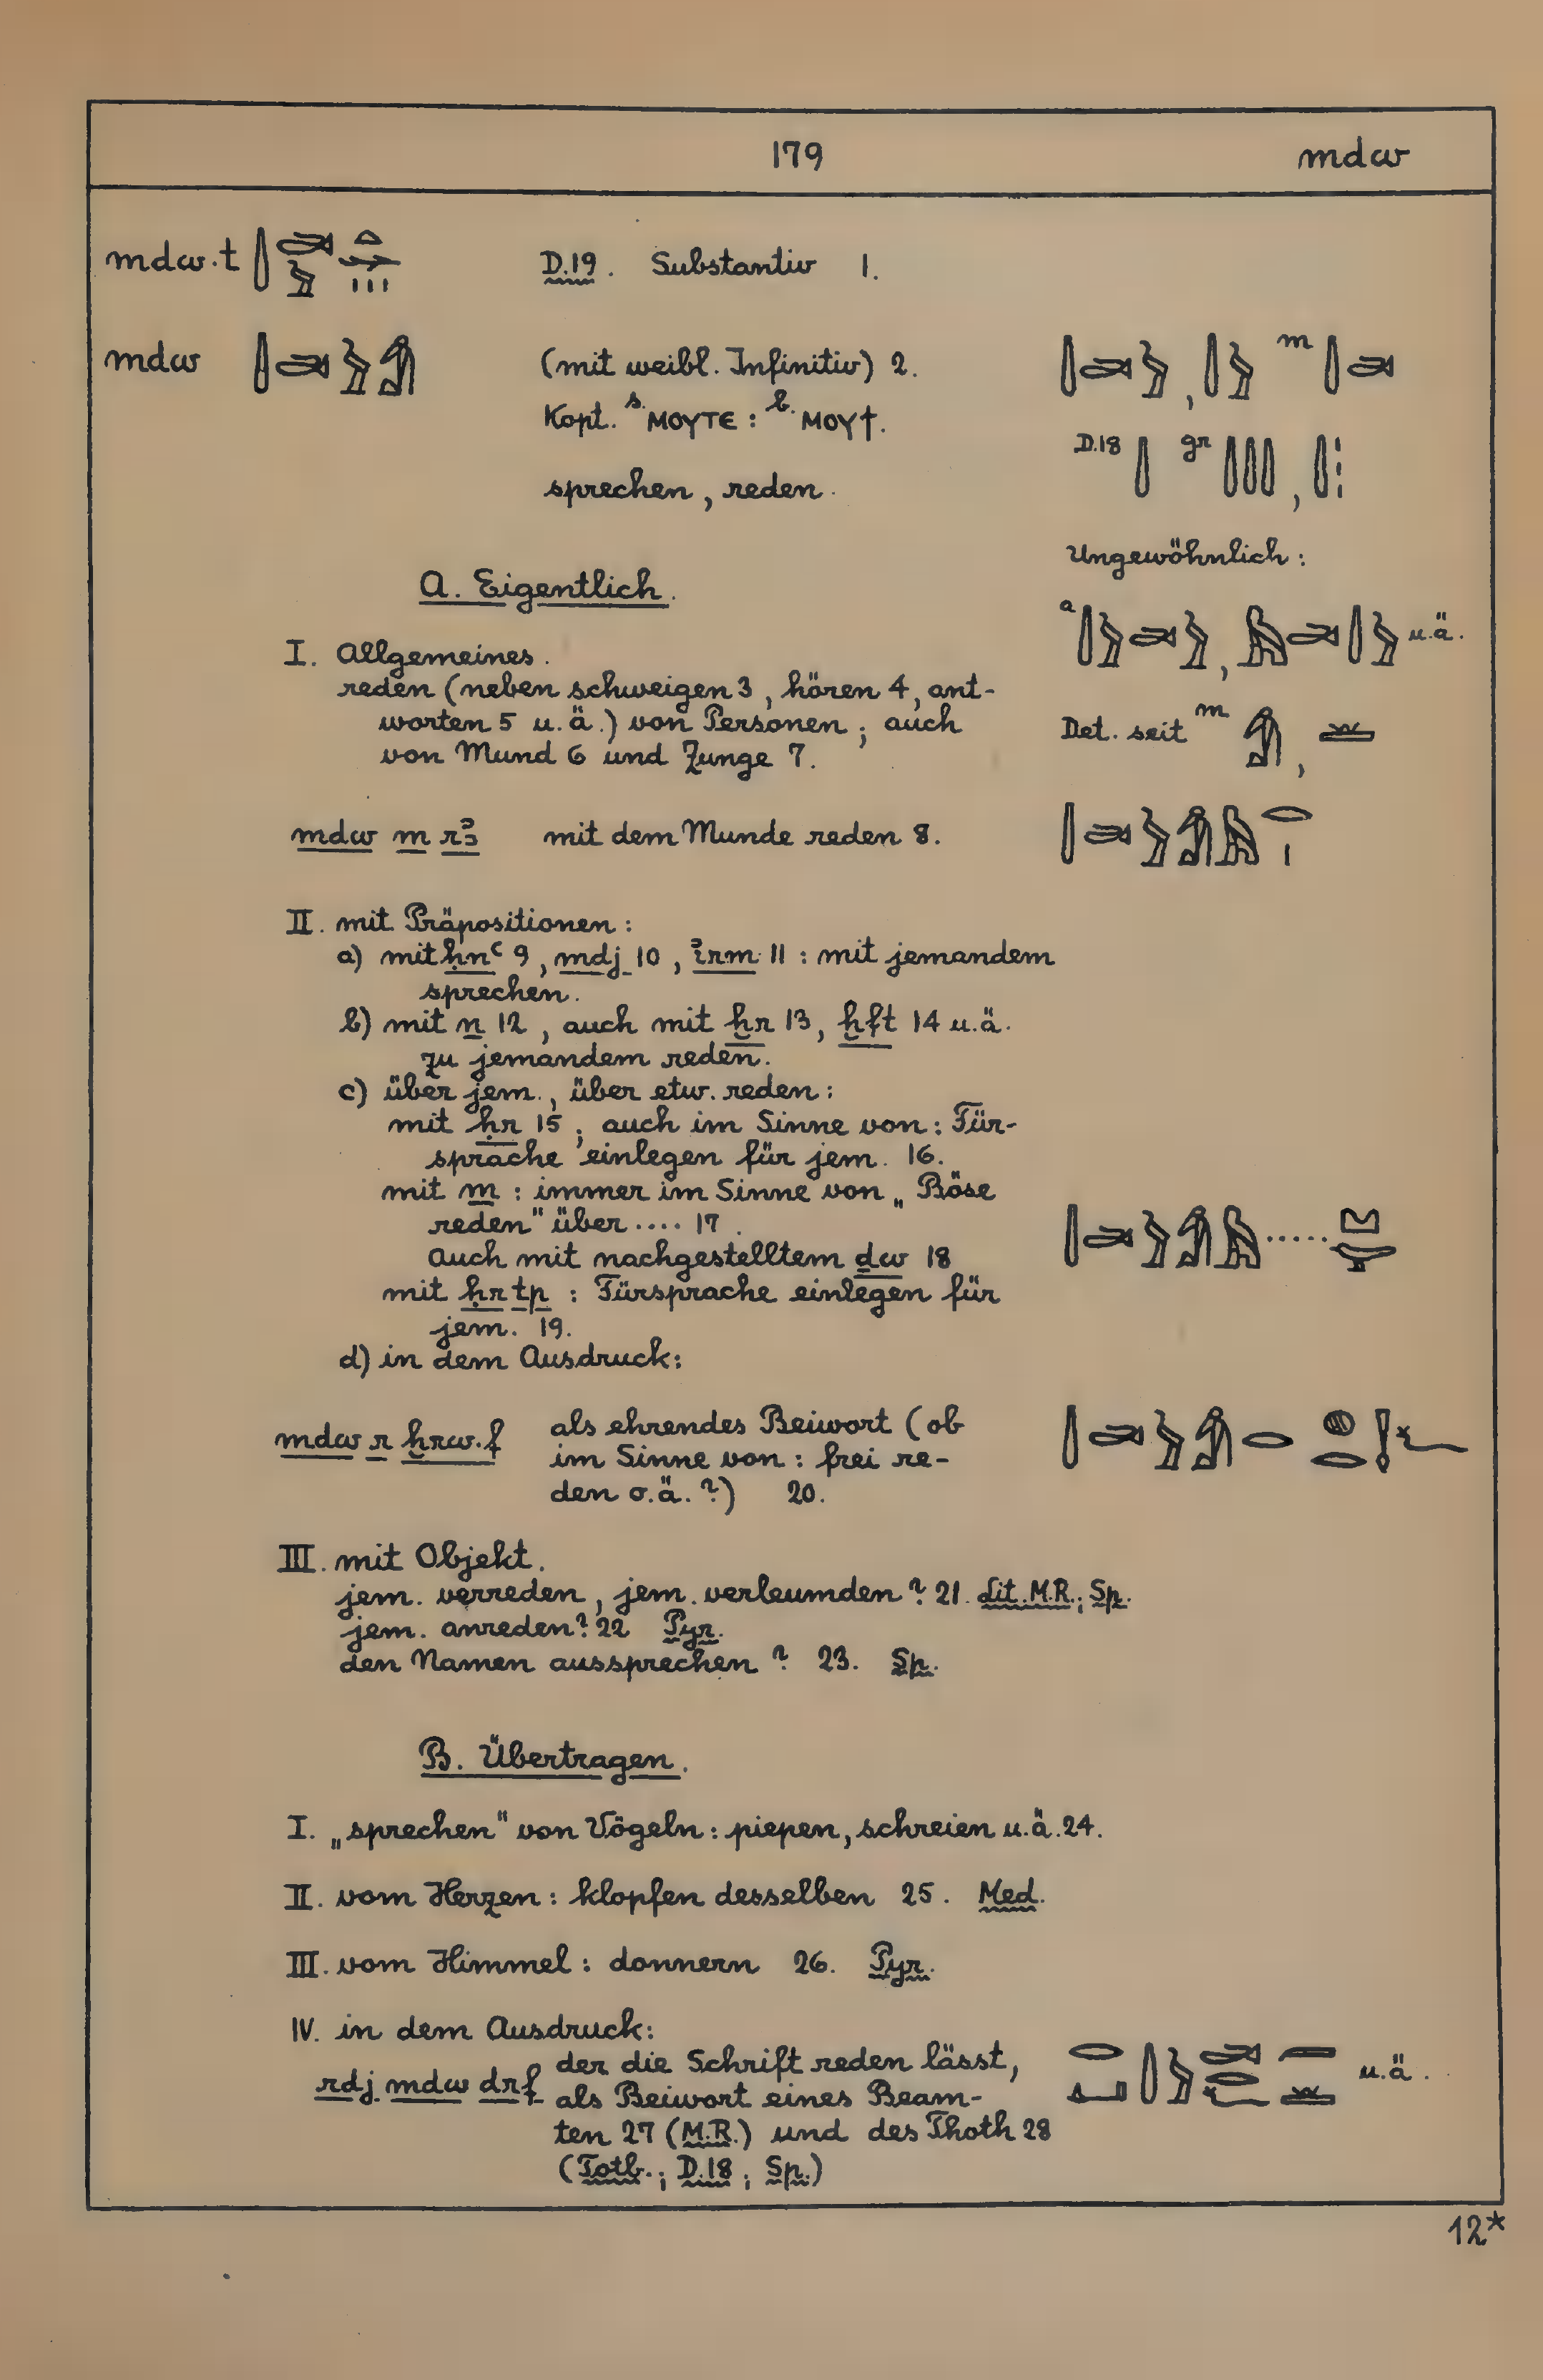 179 mdw
mdw.t D.19. Substantiv 1.
mdw (mit weibl. Infinitiv) 2. m
Kopt. s. ⲙⲟⲩⲧⲉ : b. ⲙⲟⲩϯ.
D.18 gr
sprechen, reden.
Ungewöhnlich:
A. Eigentlich.
a u.ä.
I. Allgemeines.
reden (neben schweigen 3, hören 4, ant-
worten 5 u.ä.) von Personen; auch
Det. seit m
von Mund 6 und Zunge 7.
mdw m rꜣ mit dem Munde reden 8.
II. mit Präpositionen:
a) mit ḥnꜥ 9, mdj 10, ı͗rm 11 : mit jemandem
sprechen.
b) mit n 12, auch mit ḫr 13, ḫft 14 u.ä.
zu jemandem reden.
c) über jem., über etw. reden:
mit ḥr 15; auch im Sinne von: Für-
sprache einlegen für jem. 16.
mit m : immer im Sinne von „Böse
reden" über .... 17.
Auch mit nachgestelltem ḏw 18
mit ḥr tp : Fürsprache einlegen für
jem. 19.
d) in dem Ausdruck:
mdw r ḫrw.f als ehrendes Beiwort (ob
im Sinne von: frei re-
den o.ä.?) 20.
III. mit Objekt.
jem. verreden, jem. verleumden? 21. Lit. M.R.; Sp.
jem. anreden? 22 Pyr.
den Namen aussprechen? 23. Sp.
B. Übertragen.
I. „sprechen" von Vögeln: piepen, schreien u.ä. 24.
II. vom Herzen: klopfen desselben 25. Med.
III. vom Himmel: donnern 26. Pyr.
IV. in dem Ausdruck:
rdj mdw drf der die Schrift reden lässt, u.ä.
als Beiwort eines Beam-
ten 27 (M.R.) und des Thoth 28
(Totb.; D.18; Sp.)
12*